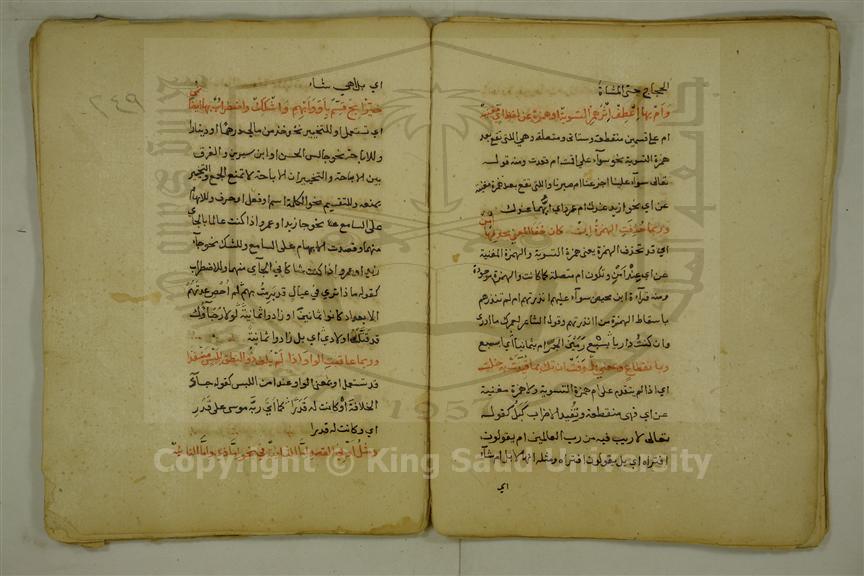 الحجاج حتى المشاة
وأم بها اعطف إثر همز التسوية أو همزة عن لفظ أي مغنية
ام على قسمين منقطعة وستاتي ومتصلة وهي التي تقع بعد
همزة التسوية نحو سواء على اقمت ام قعدت ومنه قوله
تعالى سواء علينا اجزعنا ام صبرنا والتي تقع بعد همزة مغنية
عن اي نحو ازيد عندك ام عمرو اي ايهما عندك
وربما حذفت الهمزة ان كان خفا المعنى بحذفها أمن
اي قد تحذف الهمزة يعني همزة التسوية والهمزة المغنية
عن اي عند أمن وتكون ام متصلة كما كانت والهمزة موجودة
ومنه قراءة ابن محيصن سواء عليهم انذرتهم ام لم تنذرهم
باسقاط الهمزة من اانذرتهم وقول الشاعر لعمرك ما ادري
وان كنت داريا بسبع رمين الجمر ام بثمانيا أي ابسبع
وبانقطاع وبمعنى بل وفت ان تك مما قيدت به خلت
اي اذا لم يتقدم على ام همزة التسوية ولا همزة مغنية
عن اي فهي منقطعة وتفيد الاضراب كبل كقوله
تعالى لا ريب فيه من رب العالمين ام يقولون
افتراه اي بل يقولون افتراه ومثله انها لابل ام شاء
اي
اي بل اهي شاء
٢٤٩
خير أبح قسم بأو وأبهم واشكك واضراب بها ايضا نمي
اي تستعمل او للتخيير نحو خذ من مالي درهما او دينارا
وللاباحة نحو جالس الحسن او ابن سيرين والفرق
بين الاباحة والتخيير ان الاباحة لا تمنع الجمع والتخيير
يمنعه وللتقسيم نحو الكلمة اسم او فعل او حرف وللابهام
على السامع نحو جا زيد او عمرو اذا كنت عالما بالجاي
منهما وقصدت الابهام على السامع وللشك نحو جاء
زيد او عمرو اذا كنت شاكا في الجاي منهما وللاضراب
كقوله ماذا ترى في عيال قد برمت بهم لم احص عدتهم
الا بعداد كانوا ثمانين او زادوا ثمانية لولا رجاؤك
قد قتلت اولادي اي بل زادوا ثمانية
وربما عاقبت الواو اذا لم يلف ذو النطق للبس منفذا
قد تستعمل او بمعنى الواو عند امن اللبس كقوله جاء
الخلافة او كانت له قدرا كما أتى ربه موسى على قدر
اي وكانت له قدرا
ومثل او في القصد اما الثانية في نحو اما ذي واما النائية
Copyright © King Saud University
1957